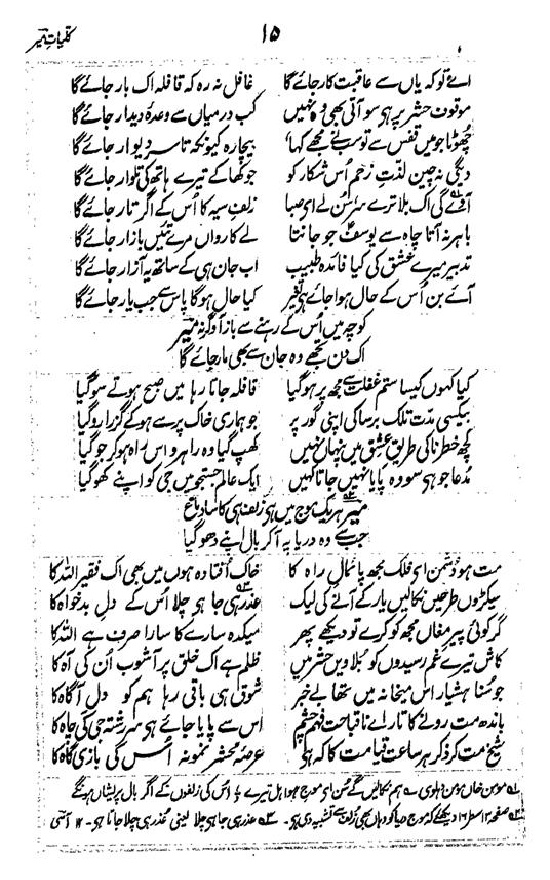 ۱۵
کلیات میر
اے تو کہ یاں سے عاقبت کار جائے گا غافل نہ رہ کہ قافلہ اک بار جائے گا
موقوف حشر پر ہی سو آتی بھی وہ نہیں کب درمیاں سے وعدۂ دیدار جائے گا
چھوٹا جو میں قفس سے تو سب نے مجھے کہا بیچارہ کیونکہ تا سر دیوار جائے گا
دیگی نہ چین لذت زخم اُس شکار کو جو کھا کے تیرے ہاتھ کی تلوار جائے گا
آوے گی اک بلا ترے سر سُن لے ای صبا زلف سیہ کا اُس کے اگر تار جائے گا
باہر نہ آتا چاہ سے یوسف جو جانتا لے کارواں مرے تئیں بازار جائے گا
تدبیر میرے عشق کی کیا فائدہ طبیب اب جان ہی کے ساتھ یہ آزار جائے گا
آئے بن اُس کے حال ہوا جائے ہی تغیر کیا حال ہوگا پاس سے جب یار جائے گا
کوچہ میں اُس کے رہنے سے باز آ وگرنہ میر
اک دن تجھے وہ جان سے بھی مار جائے گا
کیا کہوں کیسا ستم غفلت سے مجھ پر ہو گیا قافلہ جاتا رہا میں صبح ہوتے سو گیا
بیکسی مدت تلک برسا کی اپنی گور پر جو ہماری خاک پر سے ہو کے گزرا رو گیا
کچھ خطرناکی طریق عشق میں پنہاں نہیں کھپ گیا وہ راہرو اس راہ ہو کر جو گیا
مدعا جو ہی سو وہ پایا نہیں جاتا کہیں ایک عالم جستجو میں جی کو اپنے کھو گیا
میر ہر یک موج میں ہی زلف ہی کا سا دماغ
جب سے وہ دریا پہ آکر بال اپنے دھو گیا
مت ہو دشمن ای فلک مجھ پائمال راہ کا خاک اُفتادہ ہوں میں بھی اک فقیر اللہ کا
سیکڑوں طرحیں نکالیں یار کے آنے کی لیک عذر ہی جا ہو چلا اُس کے دل بدخواہ کا
گر کوئی پیر مغاں مجھ کو کرے تو دیکھے پھر میکدہ سارے کا سارا صرف ہے اللہ کا
کاش تیرے غم رسیدوں کو بلاویں حشر میں ظلم ہے اک خلق پر آشوب اُن کی آہ کا
جو سُنا ہشیار اس میخانہ میں تھا بے خبر شوق ہی باقی رہا ہم کو دل آگاہ کا
باندھ مت رونے کا تار اے ناقباحت فہم چشم اس سے پایا جائے ہو سررشتہ جی کی چاہ کا
شیخ مت کر ذکر ہر ساعت قیامت کا کہ ہو عرصۂ محشر نمونہ اُس کی بازی گاہ کا
مومن خاں مومن دہلوی ہم نکالیں گے سُن ای موج ہوا بل تیرے اُس کی زلفوں کے اگر بال پریشاں ہونگے
صفحہ ۱۳ سطر ۱۶ دیکھئے کہ موج دریا کو وہاں بھی زلف سے تشبیہ دی ہی۔ عذر ہی جا ہو چلا یعنی عذر ہی چلا جاتا ہو۔ ۱۲ آسی